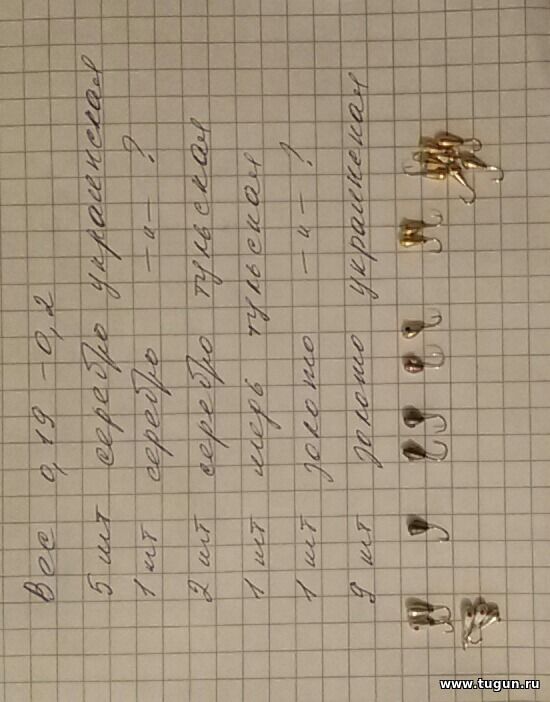 Вес 0,19 - 0,2
5 шт серебро украинская
1 шт серебро —"— ?
2 шт серебро тульская
1 шт медь тульская
1 шт золото —"— ?
9 шт золото украинская
www.tugun.ru